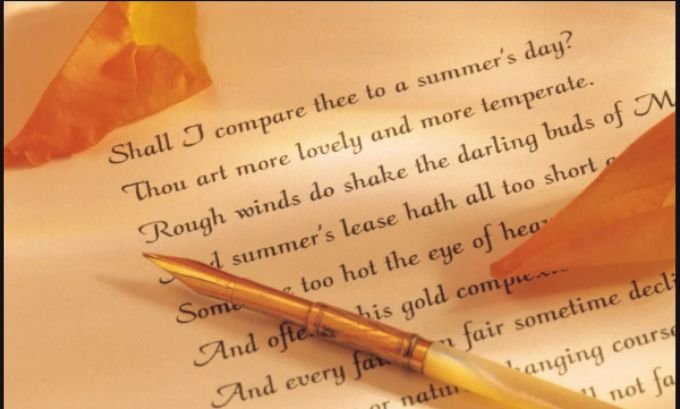 Shall I compare thee to a summer's day?
Thou art more lovely and more temperate.
Rough winds do shake the darling buds of M
d summer's lease hath all too short
Som too hot the eye of hea
And ofte his gold comple
And every fa fair sometime decli
or natu hanging course
not fa